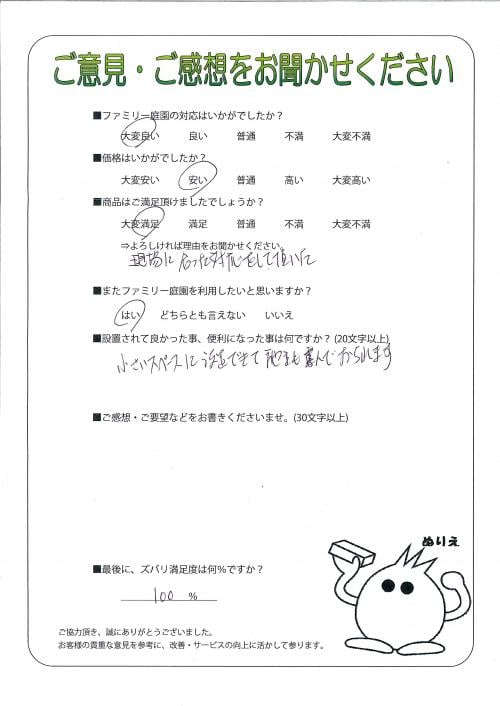 ご意見・ご感想をお聞かせください
■ファミリー庭園の対応はいかがでしたか？
大変良い 良い 普通 不満 大変不満
■価格はいかがでしたか？
大変安い 安い 普通 高い 大変高い
■商品はご満足頂けましたでしょうか？
大変満足 満足 普通 不満 大変不満
⇒よろしければ理由をお聞かせください。
現場に合った対応をして頂いた
■またファミリー庭園を利用したいと思いますか？
はい どちらとも言えない いいえ
■設置されて良かった事、便利になった事は何ですか？(20文字以上)
小さいスペースに設置できて も喜んでおられます
■ご感想・ご要望などをお書きくださいませ。(30文字以上)
ぬりえ
■最後に、ズバリ満足度は何％ですか？
100 %
ご協力頂き、誠にありがとうございました。
お客様の貴重な意見を参考に、改善・サービスの向上に活かして参ります。